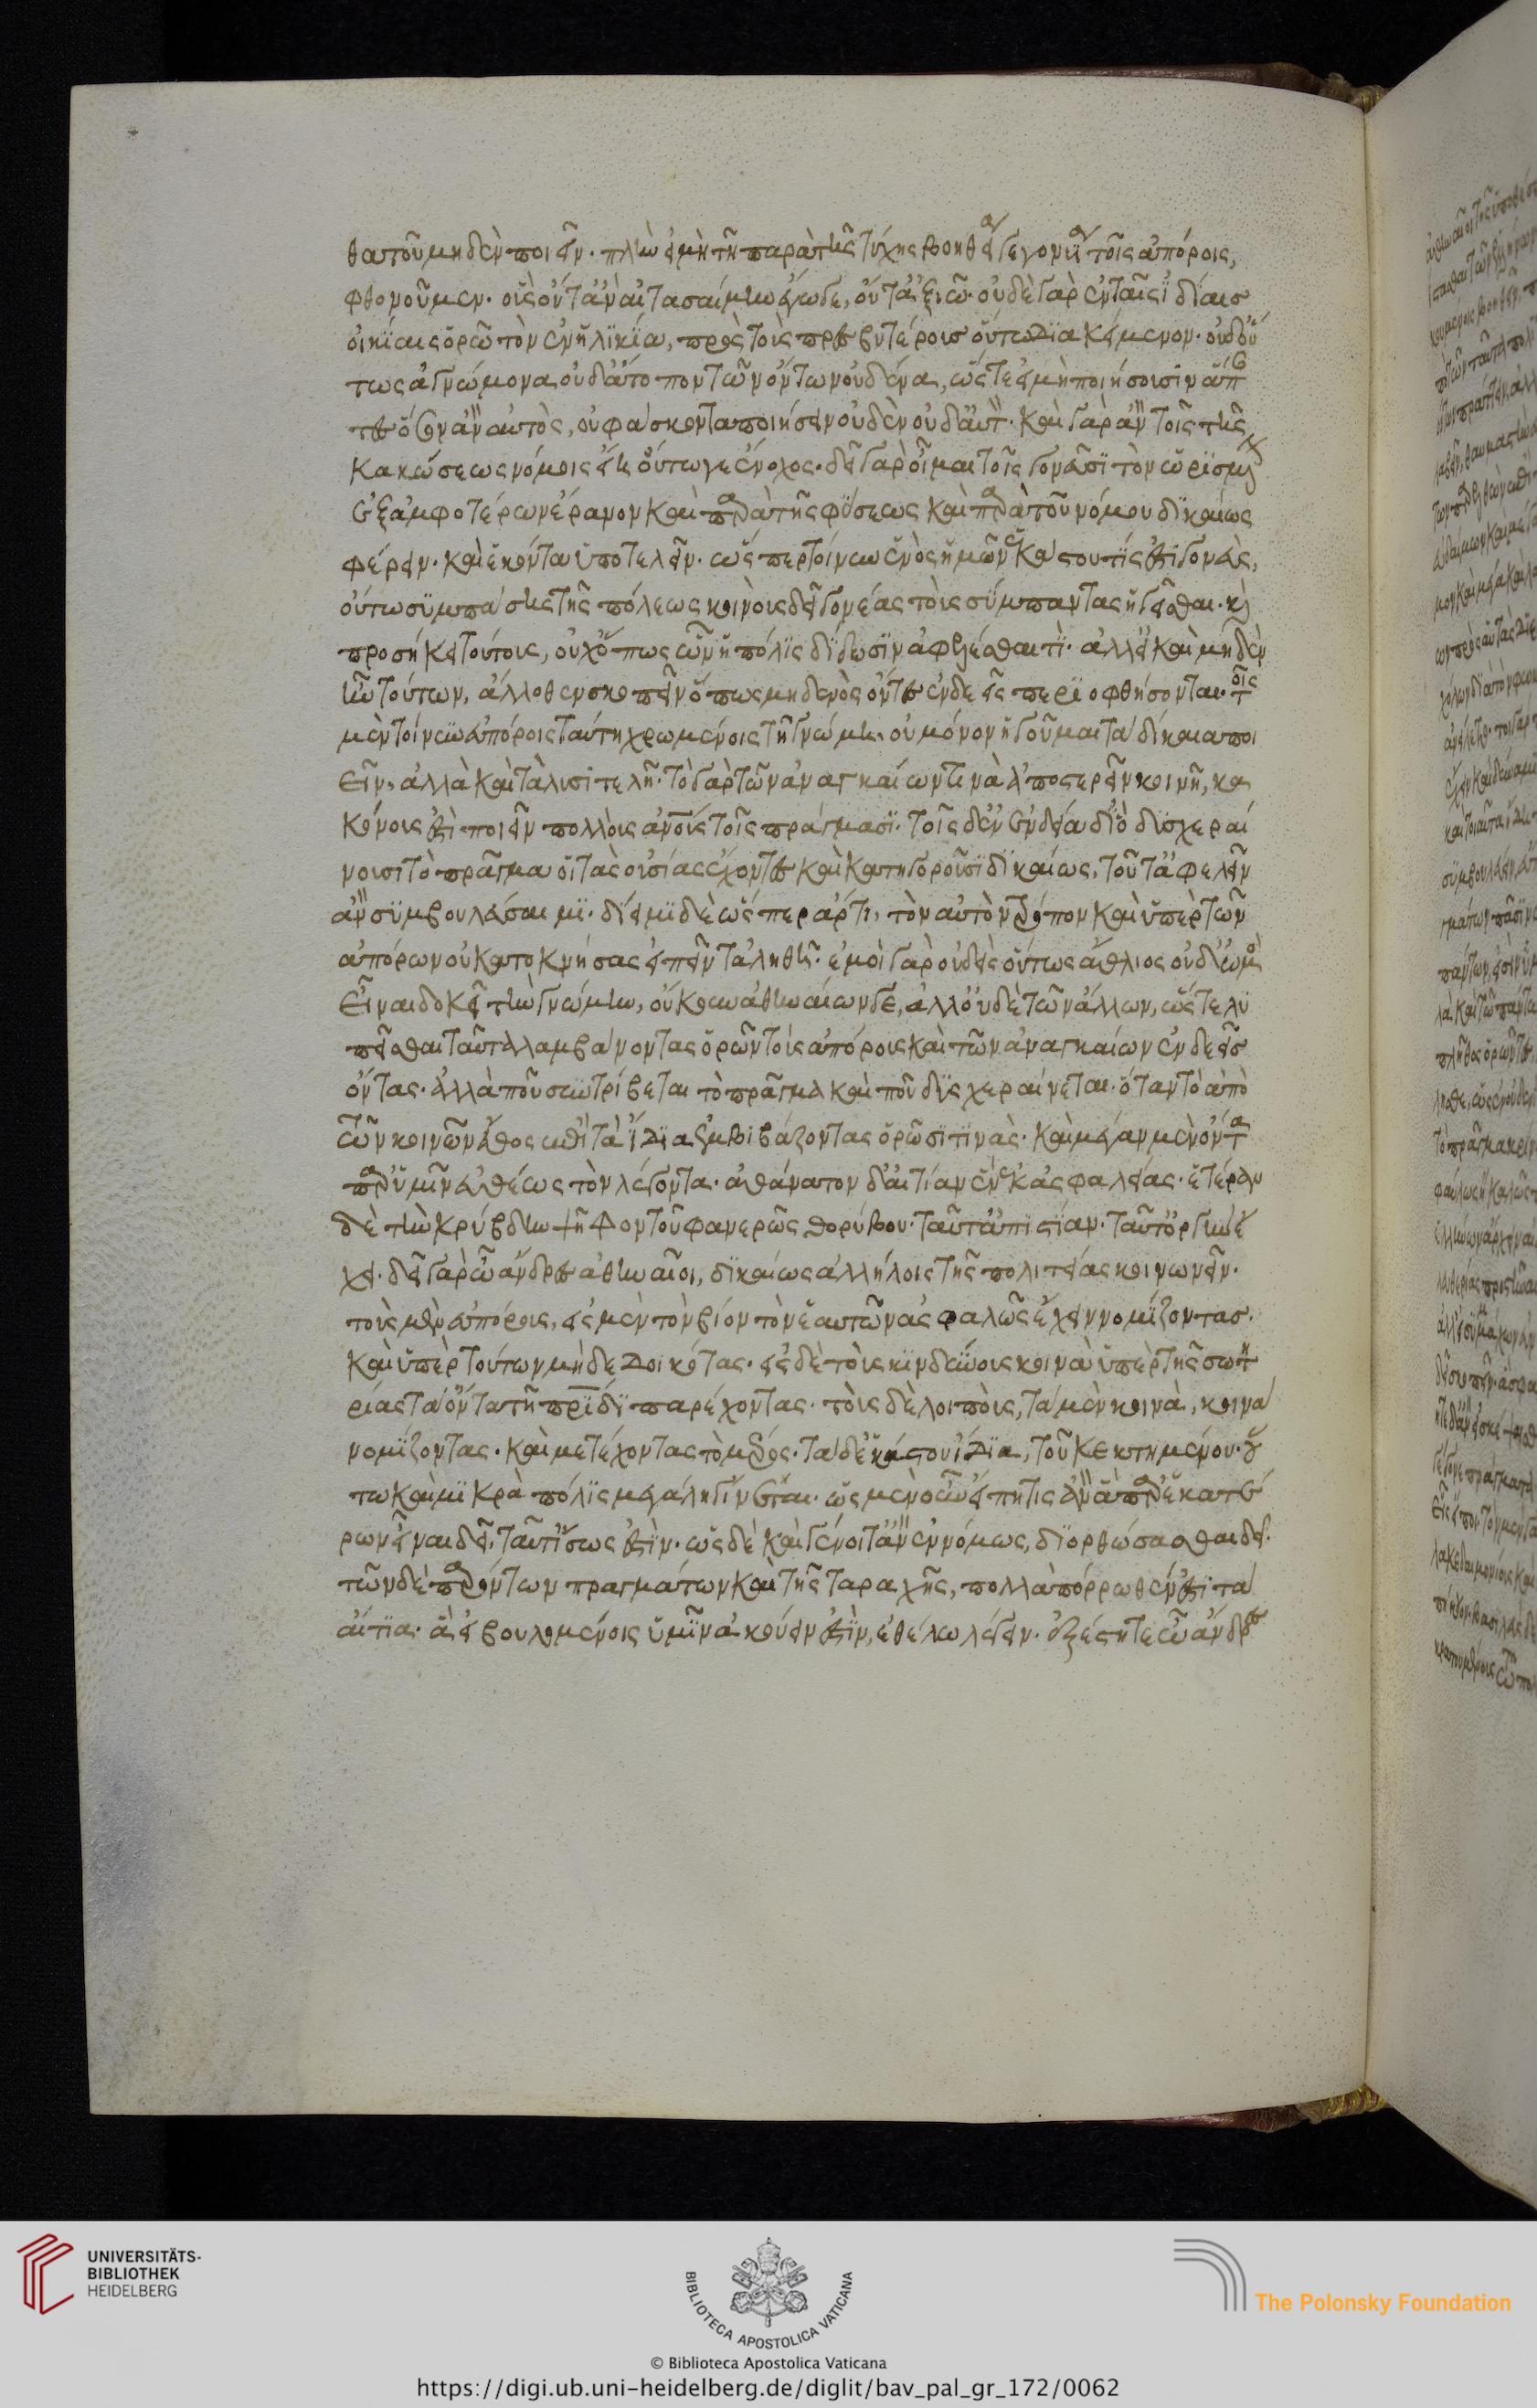 θατοῦ μηδὲν ποιεῖν. πλὴν εἰ μὴ τῇ παρὰ τῆς τύχης βοηθείᾳ γεγονυίᾳ τοῖς ἀπόροις,
φθονοῦμεν. οὓς οὔτ' ἂν αἰτιασαίμην ἔγωγε, οὔτ' ἀξιῶ. οὐδὲ γὰρ ἐν ταῖς ἰδίαις
οἰκίαις ὁρῶ τὸν ἐν ἡλικίᾳ, πρὸς τοὺς πρεσβυτέρους οὕτω διακείμενον. οὐδ' οὕ
τως ἀγνώμονα οὐδ' ἄτοπον τῶν ὄντων οὐδένα, ὥστε εἰ μὴ ποιήσουσιν ἅπαν
τες ὅσ' ἂν αὐτὸς, οὐ φάσκοντα ποιήσειν οὐδὲν οὐδ' αὐτόν. καὶ γὰρ ἂν τοῖς τῆς
κακώσεως νόμοις εἴη οὕτω γε ἔνοχος. δεῖ γὰρ οἶμαι τοῖς γονεῦσι τὸν ὡρισμένον
ἐξ ἀμφοτέρων ἔρανον καὶ παρὰ τῆς φύσεως καὶ παρὰ τοῦ νόμου δικαίως
φέρειν. καὶ ἑκόντα ὑποτελεῖν. ὥσπερ τοίνυν ἑνὸς ἡμῶν ἑκάστου τίς ἐστι γονεὺς,
οὕτω συμπάσης τῆς πόλεως κοινοὺς δεῖ γονέας τοὺς σύμπαντας ἡγεῖσθαι. καὶ
προσήκει τούτους, οὐχ ὅπως ὧν ἡ πόλις δίδωσιν ἀφελέσθαι τι. ἀλλ' εἰ καὶ μηδὲν
ἦν τούτων, ἄλλοθεν σκοπεῖν ὅπως μηδενὸς ὄντες ἐνδεεῖς περιοφθήσονται. τοὺς
μὲν τοίνυν εὐπόρους ταύτῃ χρωμένους τῇ γνώμῃ, οὐ μόνον ἡγοῦμαι τὰ δίκαια ποι
εῖν, ἀλλὰ καὶ τὰ λυσιτελῆ. τὸ γὰρ τῶν ἀναγκαίων τινὰ ἀποστερεῖν κοινῇ, κα
κόνους ἐστὶ ποιεῖν πολλοὺς ἀνθρώπους τοῖς πράγμασι. τοῖς δ' ἐν ἐνδείᾳ δι' ὃ δυσχεραί
νουσι τὸ πρᾶγμα οἱ τὰς οὐσίας ἔχοντες καὶ κατηγοροῦσι δικαίως, τοῦτ' ἀφελεῖν
ἂν συμβουλεύσαιμι. δίειμι δὲ ὥσπερ ἄρτι, τὸν αὐτὸν τρόπον καὶ ὑπὲρ τῶν
εὐπόρων οὐ κατοκνήσας εἰπεῖν τἀληθῆ. ἐμοὶ γὰρ οὐδεὶς οὕτως ἄθλιος οὐδ' ὠμὸς
εἶναι δοκεῖ τὴν γνώμην, οὔκουν ἀθηναίων γε, ἀλλ' οὐδὲ τῶν ἄλλων, ὥστε λυ
πεῖσθαι ταῦτα λαμβάνοντας ὁρῶν τοὺς ἀπόρους καὶ τῶν ἀναγκαίων ἐνδεεῖς
ὄντας. ἀλλὰ ποῦ συντρίβεται τὸ πρᾶγμα καὶ ποῦ δυσχεραίνεται. ὅταν τὸ ἀπὸ
τῶν κοινῶν ἔθος ἐπὶ τὰ ἴδια ἐμβιβάζοντας ὁρῶσι τινὰς. καὶ μέγαν μὲν ὄντα
παρ' ὑμῖν εὐθέως τὸν λέγοντα. ἀθάνατον δ' αἰτίαν ἕνεκ' ἀσφαλείας. ἑτέραν
δὲ τὴν κρύβδην ψῆφον τοῦ φανερῶς θορύβου. ταῦτ' ἀπιστίαν. ταῦτ' ὀργὴν ἔ
χει. δεῖ γὰρ ὦ ἄνδρες ἀθηναῖοι, δικαίως ἀλλήλοις τῆς πολιτείας κοινωνεῖν.
τοὺς μὲν εὐπόρους, εἰς μὲν τὸν βίον τὸν ἑαυτῶν ἀσφαλῶς ἔχειν νομίζοντας.
καὶ ὑπὲρ τούτων μὴ δεδοικότας. εἰς δὲ τοὺς κινδύνους κοινὰ ὑπὲρ τῆς σωτη
ρίας τὰ ὄντα τῇ πατρίδι παρέχοντας. τοὺς δὲ λοιποὺς, τὰ μὲν κοινὰ, κοινὰ
νομίζοντας. καὶ μετέχοντας τὸ μέρος. τὰ δ' ἑκάστου ἴδια, τοῦ κεκτημένου. οὕ
τω καὶ μικρὰ πόλις μεγάλη γίνεται. ὡς μὲν οὖν εἴπῃ τις ἂν ἃ παρ' ἑκατέ
ρων εἶναι δεῖ, ταῦτ' ἴσως ἐστὶν. ὡς δὲ καὶ γένοιτ' ἂν ἐννόμως, διορθώσασθαι δεῖ.
τῶν δὲ παρόντων πραγμάτων καὶ τῆς ταραχῆς, πολλὰ πόρρωθέν ἐστι τὰ
αἴτια. ἃ εἰ βουλομένοις ὑμῖν ἀκούειν ἐστὶν, ἐθέλω λέγειν. ἐξέστητε ὦ ἄνδρες
UNIVERSITÄTS-
BIBLIOTHEK
HEIDELBERG
BIBLIOTECA APOSTOLICA VATICANA
The Polonsky Foundation
© Biblioteca Apostolica Vaticana
https://digi.ub.uni-heidelberg.de/diglit/bav_pal_gr_172/0062